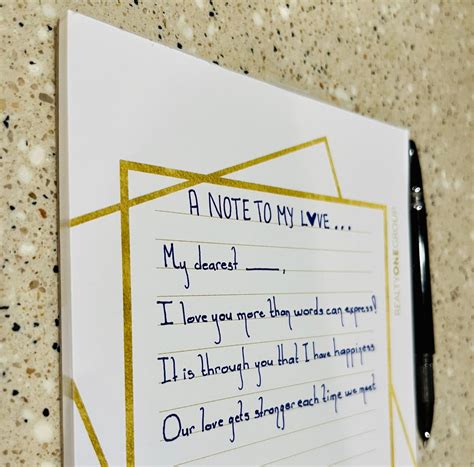 A NOTE TO MY L♥VE...
My dearest ____,
I love you more than words can express!
It is through you that I have happiness
Our love gets stronger each time we meet
REALTYONEGROUP